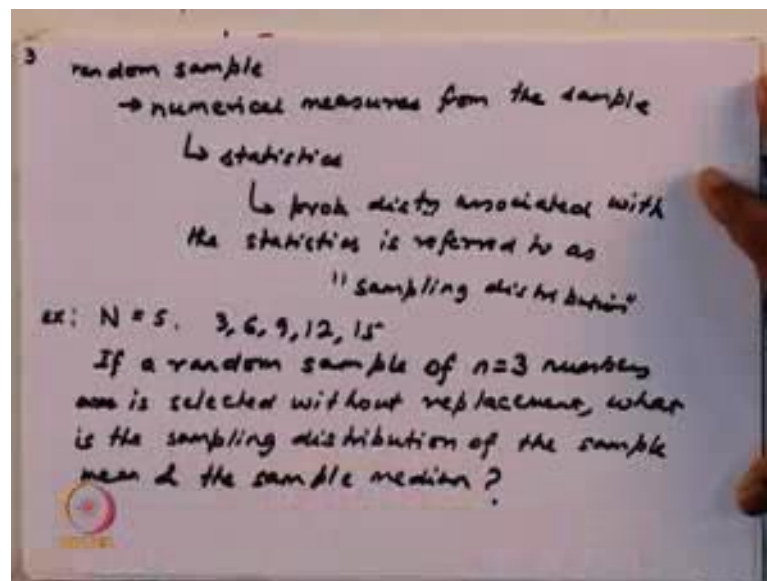 3
random sample
→ numerical measures from the sample
↳ statistics
↳ prob distn associated with
the statistics is referred to as
"sampling distribution"
ex: N = 5. 3, 6, 9, 12, 15
If a random sample of n=3 numbers
is selected without replacement, what
is the sampling distribution of the sample
mean & the sample median?